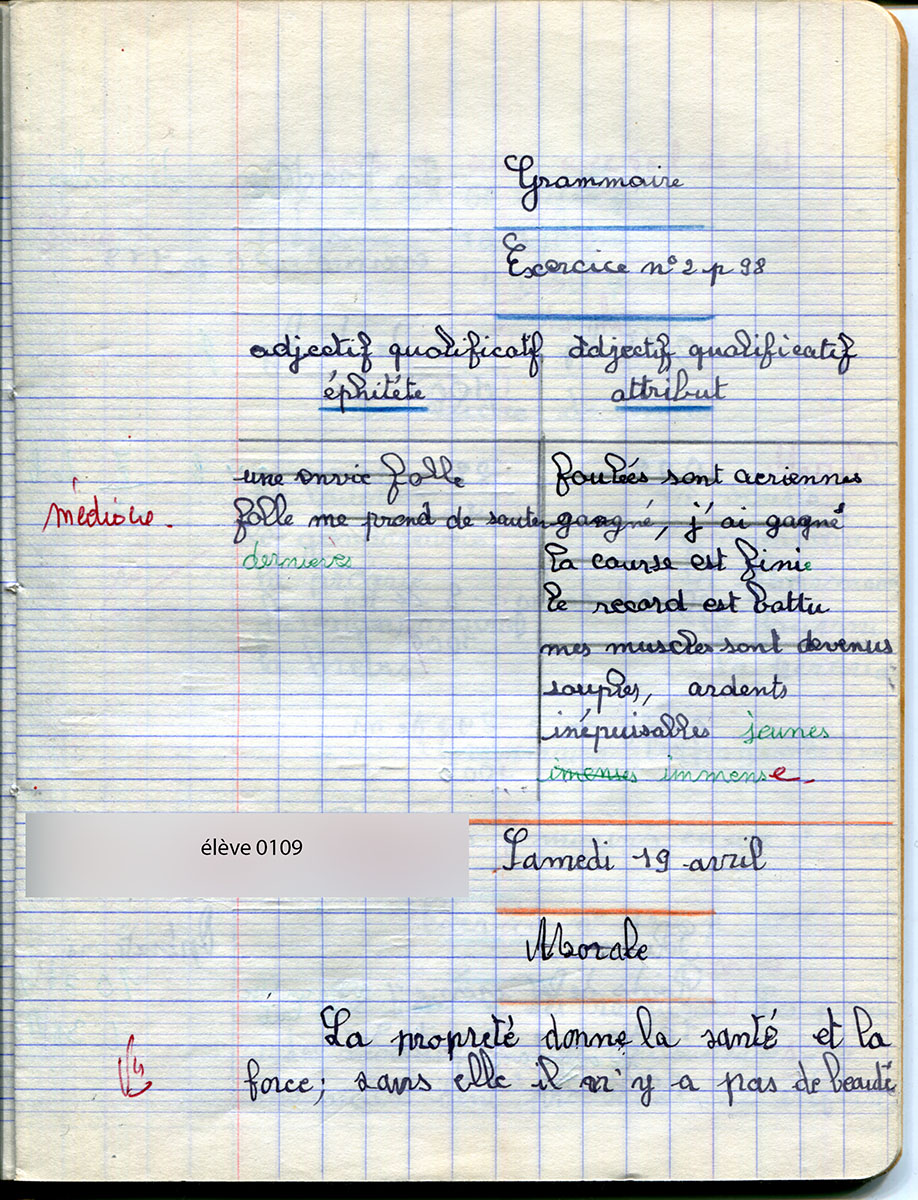 Grammaire
Exercice n° 2 p 98
adjectif qualificatif
éphitéte
adjectif qualificatif
attribut
médiocre.
une envie folle
folle me prend de sauter
dernières
foulées sont aeriennes
gangné, j'ai gagné
la course est finie
le record est battu
mes muscles sont devenus
souples, ardents
inépuisables jeunes
imenses immense
élève 0109
Samedi 19 avril
Morale
La propreté donne la santé et la
force; sans elle il n'y a pas de beauté